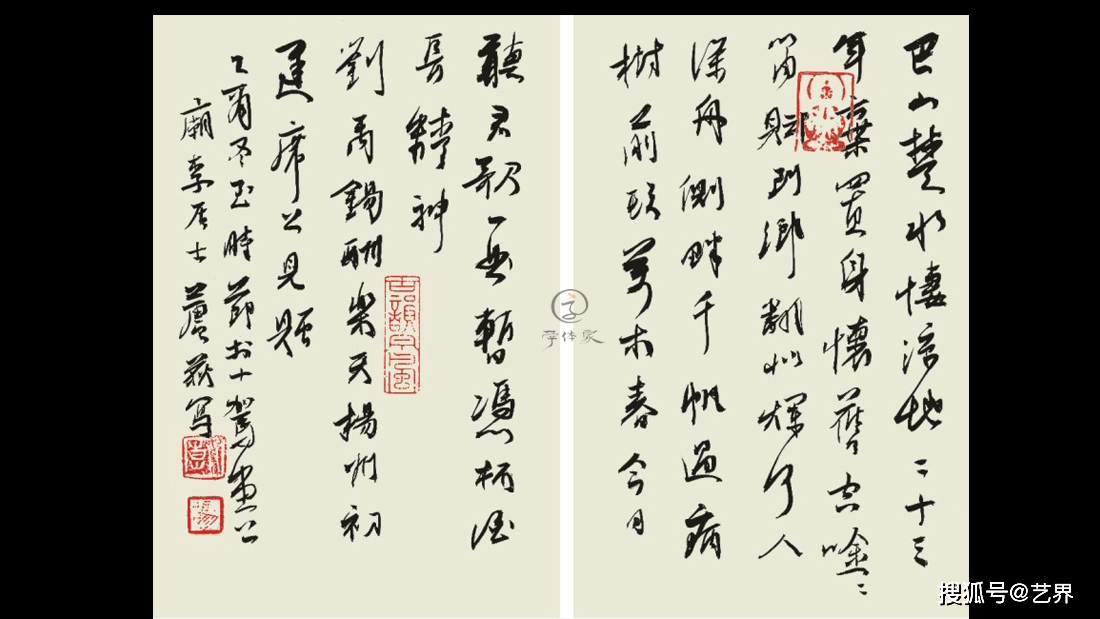 巴山楚水淒涼地二十三
年棄置身懷舊空唫聞
笛賦到鄉翻似爛柯人
沉舟側畔千帆過病
樹前頭萬木春今日
聽君歌一曲暫憑杯酒
長精神
劉禹錫酬樂天揚州初
逢席上見贈
冬至時節於十駕
廟李居士蘆荻寫
字体家
搜狐号@艺界